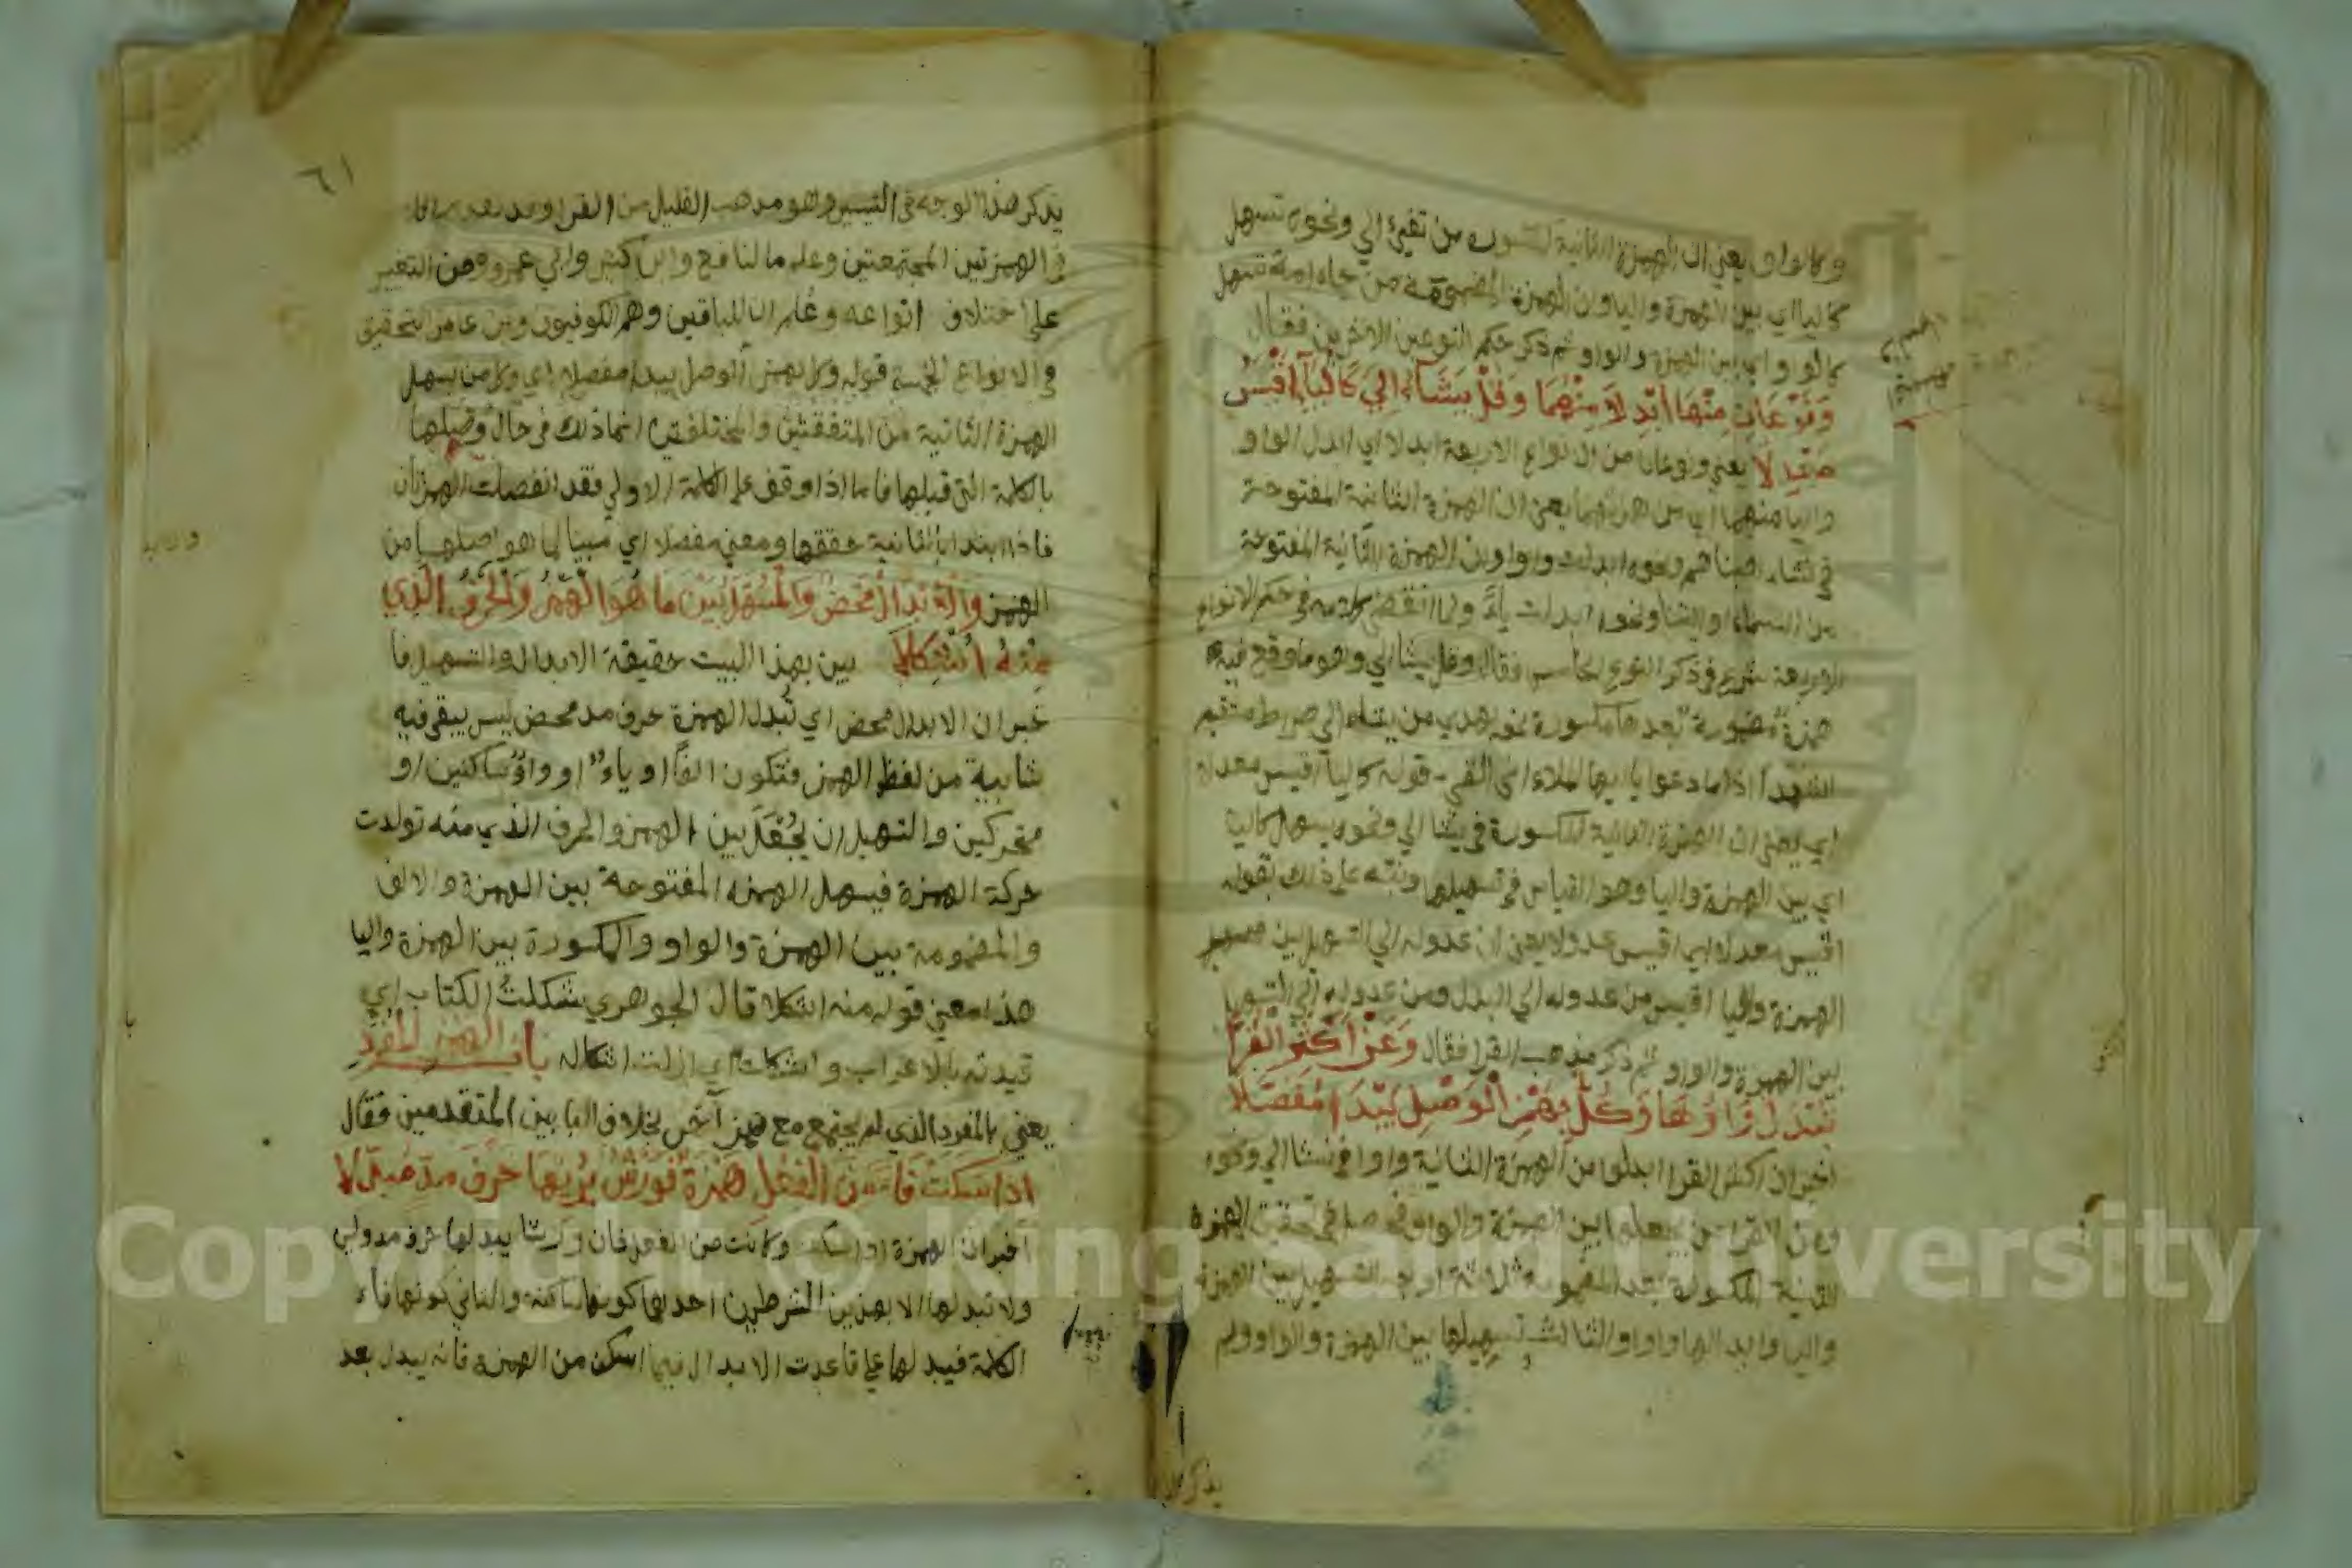 وكالواو يعني ان الهمزة الثانية المكسورة من تفيء الي ونحوه تسهل
كاليا اي بين الهمزة واليا وان الهمزة المضمومة من جاء امة تسهل
كالواو اي بين الهمزة والواو ثم ذكر حكم النوعين الاخرين فقال
وَنَوْعَانِ مِنْهَا أُبْدِلاَ مِنْهُمَا وَقُلْ يَشَاءُ إِلَي كَالْيَآءِ أَقْيَسُ
مَعْدِلاَ يعني ونوعان من الانواع الاربعة ابدلا اي ابدل الواو
واليا منهما اي من همزتهما يعني ان الهمزة الثانية المفتوحة
في نشاء اصبناهم ونحوه ابدلت واوا وان الهمزة الثانية المفتوحة
من السماء او ائتنا ونحوه ابدلت ياءً ولما انقضى كلامه في حكم الانواع
الاربعة شرع في ذكر النوع الخامس فقال وقل يشا الي وهو ما وقع فيه
همزة مضمومة بعدها مكسورة نحو يهدي من يشاء الي صراط مستقيم
الشهدآ اذا ما دعوا يا ايها الملاء اني القي قوله كاليآ اقيس معدلا
اي يعني ان الهمزة الثانية المكسورة في يشا الي ونحوه يسهل كاليا
اي بين الهمزة واليا وهو القياس في تسهيلها ونبه على ذلك بقوله
اقيس معدلا اي اقيس عدولا يعني ان عدوله الي التسهيل بين
الهمزة واليا اقيس من عدوله الي البدل ومن عدوله الي التسهيل
بين الهمزة والواو ثم ذكر مذهب القرا فقال وَعَنْ أَكْثَرِ الْقُرَّا
تُبْدَلُ وَاوُهَا وَكُلٌّ بِهَمْزِ الْوَصْلِ يَبْدَا مُفَصِّلاَ
اخبر ان اكثر القرا ابدلوا من الهمزة الثانية واوا في يشا الي ونحوه
ومن القرا من يجعلها بين الهمزة والواو فحصل في تحقيق الهمزة
الثانية المكسورة بعد المضمومة ثلاثة اوجه التسهيل بين الهمزة
واليا وابدالها واوا والثالث تسهيلها بين الهمزة والواو ولم
يذكر
٦١
يذكر هذا الوجه في التيسير وهو مذهب القليل من القرا وقد
في الهمزتين المجتمعتين وعلم ما لنافع وابن كثير وابي عمرو من التغيير
على اختلاف انواعه وعلم ان للباقين وهم الكوفيون وابن عامر التحقيق
في الانواع الخمسة قوله وكل بهمز الوصل يبدا مفصلا اي وكل من يسهل
الهمزة الثانية من المتفقتين والمختلفتين انما ذلك في حال وصلها
بالكلمة التي قبلها فاما اذا وقف على الكلمة الاولي فقد انفصلت الهمزتان
فاذا ابتدا بالثانية حققها ومعني مفصلا اي مبينا لما هو اصلها من
الهمز وَالْإِبْدَالُ مَحْضٌ وَالْمُسَهَّلُ بَيْنَ مَا هُوَ الْهَمْزُ وَالْحَرْفُ الَّذِي
مِنْهُ أُشْكِلاَ بين بهذا البيت حقيقة الابدال والتسهيل فا
خبر ان الابدال محض اي تُبدل الهمزة حرف مد محض ليس يبقى فيه
شايبة من لفظ الهمز فتكون الفًا او ياءً او واوًا ساكنين او
متحركين والتسهيل ان يُجْعَلَ بين الهمز والحرف الذي منه تولدت
حركة الهمزة فيسهل الهمزه المفتوحة بين الهمزة والالف
والمضمومة بين الهمزة والواو والمكسورة بين الهمزة واليا
هذا معني قوله منه اشكلا قال الجوهري شكلتُ الكتاب اي
قيدته بالاعراب واشكلته اي ازلت اشكاله باب الهمز المفرد
يعني بالمفرد الذي لم يجتمع مع همز آخر بخلاف البابين المتقدمين فقال
اذَا سَكَنَتْ فَاءً مِنَ الْفِعْلِ هَمْزَةٌ فَوَرْشٌ يُرِيهَا حَرْفَ مَدٍّ مُبَدَّلاَ
اخبر ان الهمزة اذا سكنت وكانت من الفعل فان ورشا يبدلها حرف مد ولين
ولا تبدلها الا بهذين الشرطين احدهما كونها ساكنة والثاني كونها فاء
الكلمة فيبدلها علي قاعدت الابدال فيما اسكن من الهمزه فانه يبدل بعد